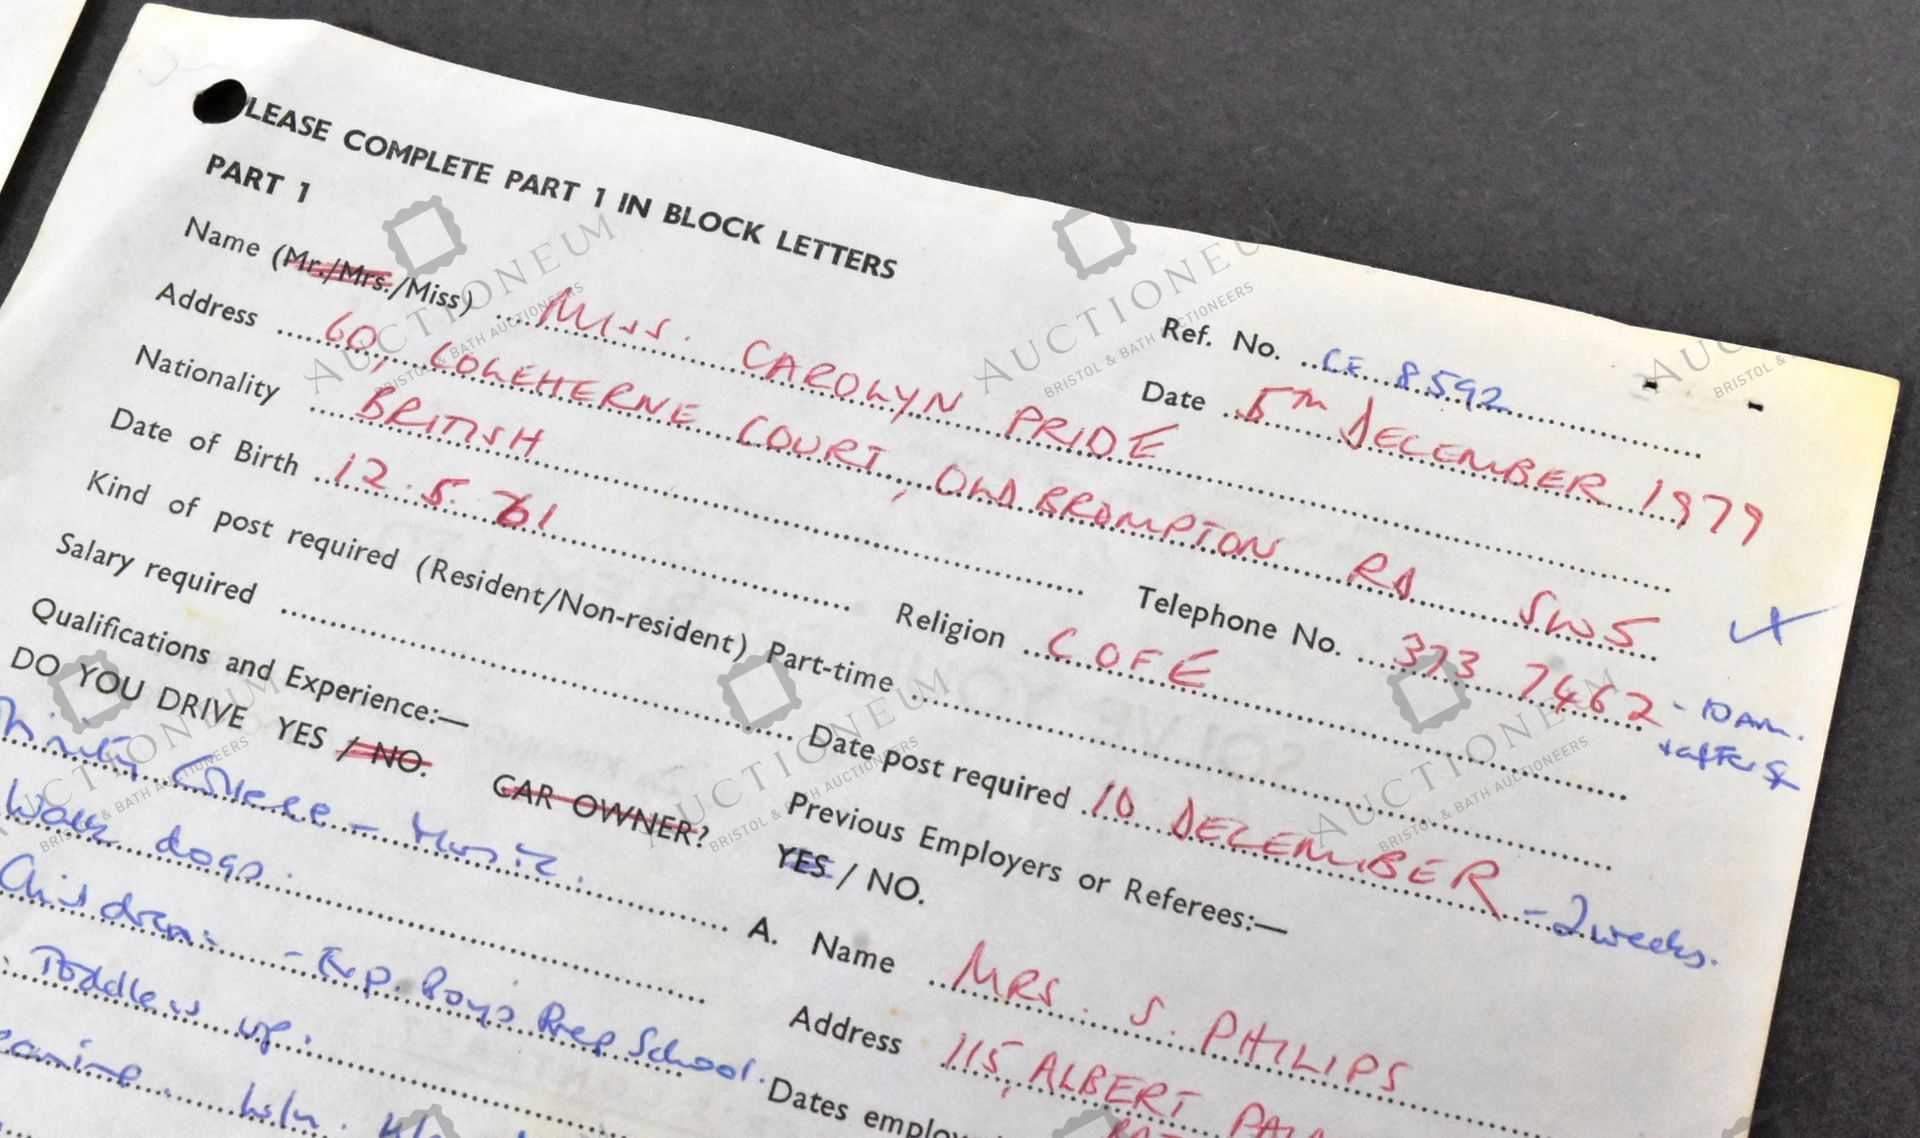 LEASE COMPLETE PART 1 IN BLOCK LETTERS
PART 1
Name (Mr./Mrs./Miss) MISS. CAROLYN PRIDE
Ref. No. CE 8592
Date 5TH DECEMBER 1979
Address 60, COLEHERNE COURT, OLD BROMPTON RD SW5
Nationality BRITISH
Telephone No. 373 7462 - 10am.
+ after 5
Date of Birth 12.5.61
Religion C OF E
Kind of post required (Resident/Non-resident) Part-time
Salary required
Date post required 10 DECEMBER - 2 weeks.
Qualifications and Experience:—
Previous Employers or Referees:—
DO YOU DRIVE YES / NO. CAR OWNER? YES / NO.
College - Music.
Walk dogs.
Children - Exp. Boys Prep School.
Toddlers up.
A. Name MRS. S. PHILIPS
Address 115, ALBERT
Dates employ
AUCTIONEUM
BRISTOL & BATH AUCTIONEERS